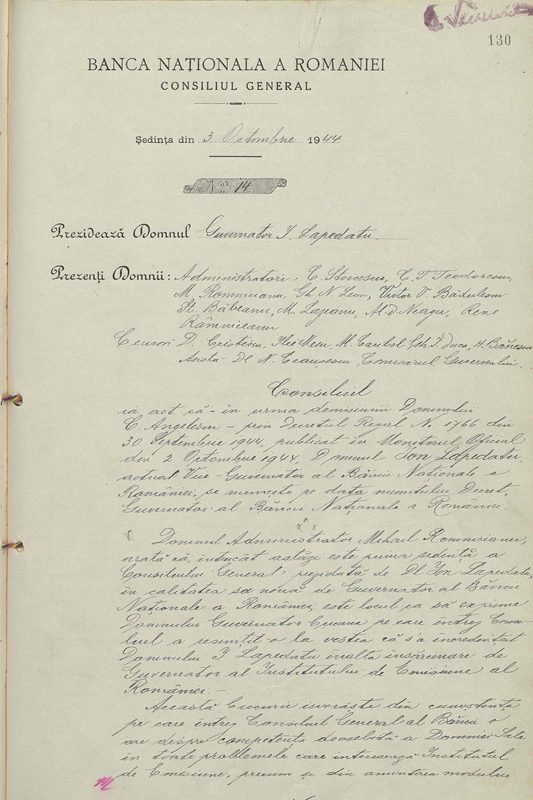 130
BANCA NAȚIONALA A ROMANIEI
CONSILIUL GENERAL
Ședința din 3 Octombrie 1944
No 14
Prezidează Domnul Guvernator I. Lapedatu
Prezenți Domnii: Administratori, C. Stoicescu, C. T. Teodorescu,
M. Romniceanu, Gh. N. Leon, Victor V. Bădulescu
St. Băbeanu, M. Lapeanu, Al. D. Neagu, Rene
Râmniceanu
Cenzori D. Cristescu, Ilie Mecu, M. Caribol, Gh. I. Duca, H. Bănescu
Asistă Dl N. Ceausescu, Comisarul Guvernului
Consiliul
ia act că - în urma demisiunii Domnului
C. Angelescu - prin Decretul Regal Nr. 1766 din
30 Septembrie 1944, publicat în Monitorul Oficial
din 2 Octombrie 1944, Domnul Ion Lapedatu,
actual Vice-Guvernator al Băncii Naționale a
României, se numește pe data numitului Decret,
Guvernator al Băncii Naționale a României.
Domnul Administrator Mihail Romniceanu,
arată că, întrucât astăzi este prima ședință a
Consiliului General, prezidată de Dl Ion Lapedatu,
în calitatea sa nouă de Guvernator al Băncii
Naționale a României, este locul ca să exprime
Domnului Guvernator bucuria pe care întreg Consi-
liul a resimțit-o la vestea că s'a încredințat
Domnului I. Lapedatu înalta însărcinare de
Guvernator al Institutului de Emisiune al
României. -
Această bucurie isvorăște din cunoștința
pe care întreg Consiliul General al Băncii o
are despre competența deosebită a Domniei Sale
în toate problemele care interesează Institutul
de Emisiune, precum și din amintirea modului